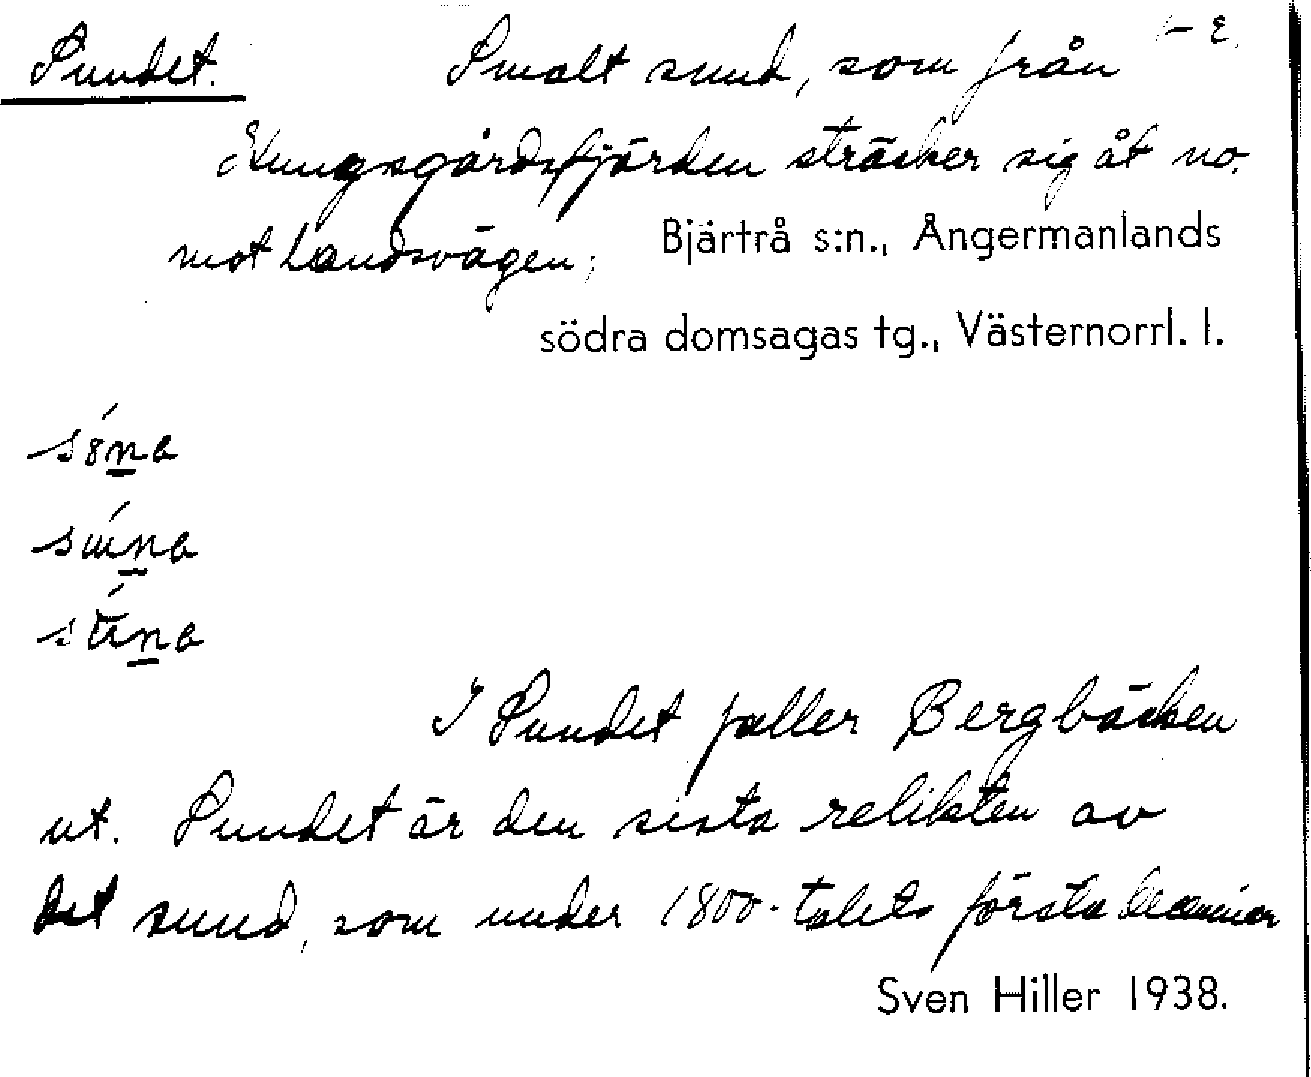 Sundet. Smalt sund, som från
Kungsgårdsfjärden sträcker sig åt no.
mot landsvägen; Bjärtrå s:n., Ångermanlands
södra domsagas tg., Västernorrl. l.
I Sundet faller Bergbäcken
ut. Sundet är den sista relikten av
det sund, som under 1800-talets första decennier
Sven Hiller 1938.